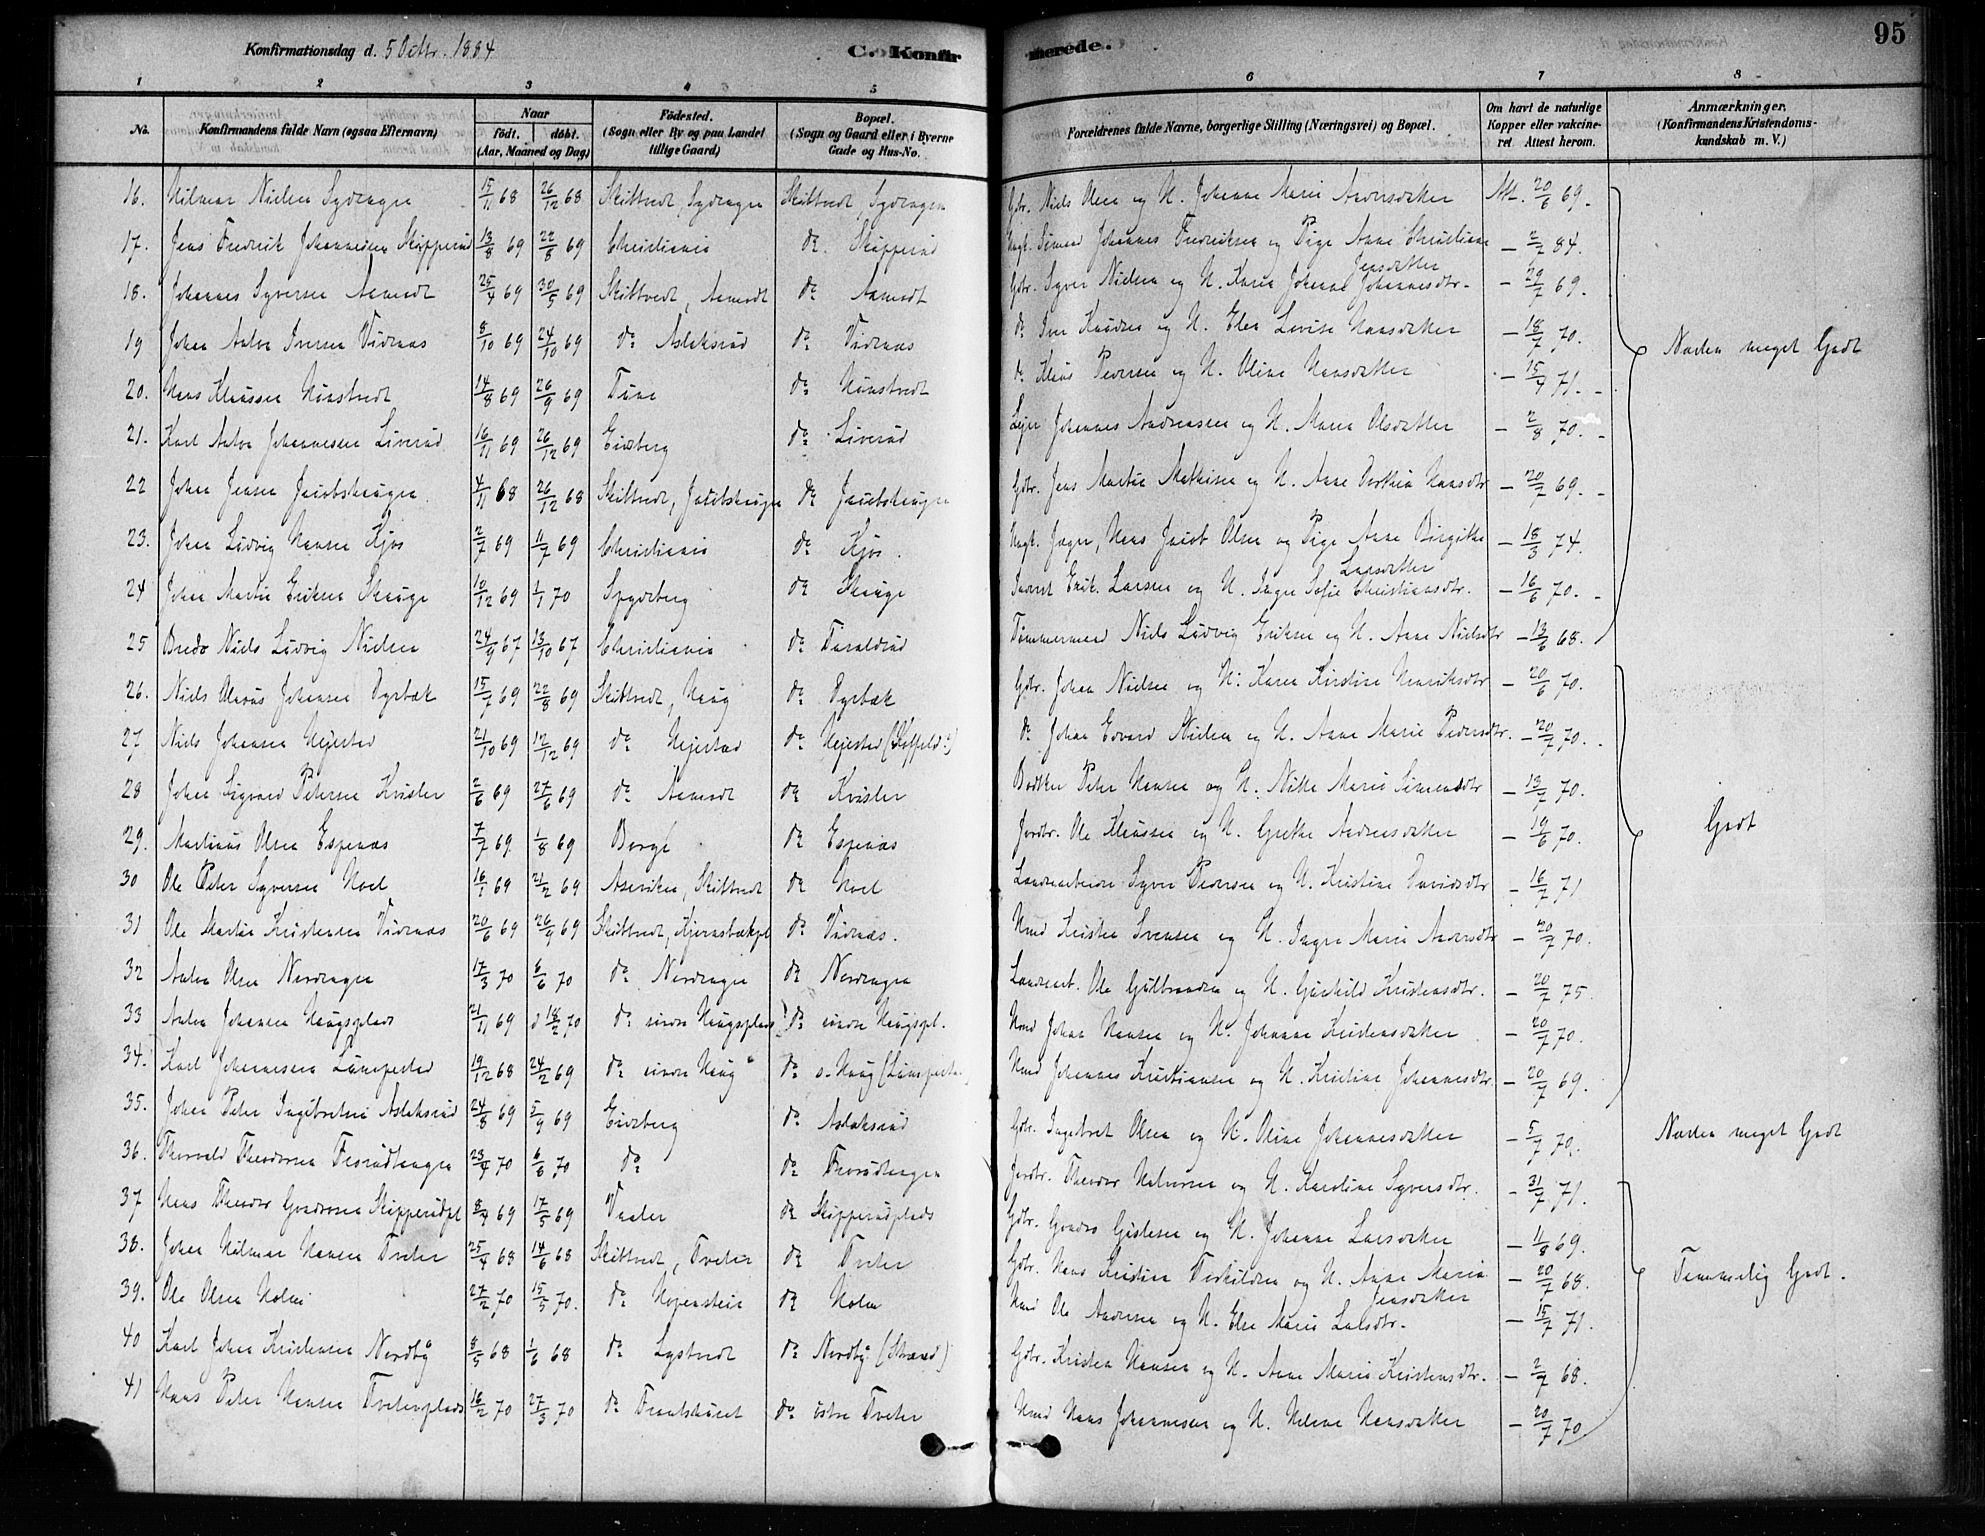 Konfirmationsdag d. 5 Octbr. 1884
C. Konfirmerede.
95
1 2 3 4 5 6 7 8
No. | Konfirmandens fulde Navn (ogsaa Efternavn) | Naar født. døbt. (Aar, Maaned og Dag) | Födested. (Sogn eller By og paa Landet tillige Gaard) | Bopæl. (Sogn og Gaard eller i Byerne Gade og Hus-No. | Forældrenes fulde Navne, borgerlige Stilling (Næringsvei) og Bopæl. | Om havt de naturlige Kopper eller vakcineret. Attest herom. | Anmærkninger. (Konfirmandens Kristendomskundskab m. V.)
16. Hilmar Nielsen Sydengen 15/11 68 26/12 68 Skiptvedt, Sydengen Skiptvedt, Sydengen Gbr. Niels Olsen og H. Johanne Marie Andersdatter Att. 20/6 69.
17. Jens Fredrik Johannesen Skipperud 13/8 69 22/8 69 Christiania do Skipperud Ungk. Sömand Johannes Fredriksen og Pige Anne Christiane Jensdatter - 2/7 84.
18. Johannes Syversen Aamodt 25/4 69 30/5 69 Skiptvedt, Aamodt do Aamodt Gbr. Syver Nielsen og H. Karen Johanne Johannesdtr. - 20/7 69.
19 Johan Anton Iversen Vidnæs 8/10 69 24/10 69 do Aslaksrud do Vidnæs do Iver Knudsen og H. Elen Lovise Hansdatter - 18/7 70.
20. Hans Klausen Haastvedt 14/8 69 26/9 69 Tune do Haastvedt do Klaus Pedersen og H. Oline Hansdatter - 15/7 71.
21. Karl Anton Johannesen Liverud 16/11 69 26/12 69 Eidsberg do Liverud Lejer Johannes Andreassen og H. Maren Olsdatter - 2/8 70.
22 Johan Jensen Jacobshaugen 4/11 68 26/12 68 Skiptvedt, Jacobshaugen do Jacobshaugen Gbr. Jens Martin Mathisen og H. Anne Dorthea Hansdtr - 20/7 69.
23. Johan Ludvig Hansen Kjos 2/7 69 11/7 69 Christiania do Kjos. Ungk. Jæger, Hans Jacob Olsen og Pige Anne Birgitte Larsdatter - 18/3 74.
24 Johan Martin Eriksen Skauge 10/12 69 1/1 70 Spydeberg do Skauge Erik Larsen og H. Inger Sofie Christiansdtr. - 16/6 70.
25 Bredo Niels Ludvig Nielsen 24/9 67 13/10 67 Christiania do Taraldrud Tømmermand Niels Ludvig Eriksen og H. Anne Nielsdtr - 13/6 68.
Næsten meget Godt
26. Niels Olavus Johansen Dyrbæk 15/7 69 22/8 69 Skiptvedt, Haug do Dyrbæk Gbr. Johan Nielsen og H. Karen Kirstine Henriksdtr - 20/6 70.
27 Niels Johansen Hejestad 21/10 69 12/12 69 do Hejestad do Hejestad do Johan Edvard Nielsen og H. Anne Marie Pedersdtr. - 20/7 70.
28 Johan Sigvard Petersen Kvisler 2/6 69 27/6 69 do Aamodt do Kvisler Bødker Peter Hansen og H. Nikke Marie Simensdtr - 13/7 70.
29. Martinus Olsen Espenæs 7/7 69 1/8 69 Borge do Espenæs Jordbr. Ole Klausen og H. Grethe Andersdatter - 19/6 70.
30 Ole Peter Syversen Hoel 16/1 69 21/2 69 Skiptvedt do Hoel Syver Pedersen og H. Kristine Davidsdtr - 16/7 71
31 Ole Martin Kristensen Vidnæs 20/6 69 26/9 69 Skiptvedt, Kjernsbækpl do Vidnæs. Hmd Kristen Svensen og H. Inger Marie Andersdtr - 20/7 70.
32 Anton Olsen Nordengen 17/3 70 6/6 70 do Nordengen do Nordengen Ole Gulbrandsen og H. Gunhild Kristensdtr. - 20/7 75.
33 Anton Johansen Haugsplads 21/11 69 d 18/2 70 do søndre Haugsplads do søndre Haugspl. Hmd Johan Hansen og H. Johanne Kristensdatter - 20/7 70.
34. Karl Johannesen Lumpestad 19/12 68 24/2 69 do søndre Haug do s. Haug (Lumpesta.) Hmd Johannes Kristiansen og H. Kristine Johannesdtr. - 20/7 69.
Godt
35. Johan Peter Ingebretsen Aslaksrud 24/8 69 5/9 69 Eidsberg do Aslaksrud Gbr. Ingebret Olsen og H. Oline Johannesdatter - 5/7 70. Næsten meget Godt
36. Thorvald Theodorsen Fosrudhaugen 23/4 70 6/6 70 do do Fosrudhaugen Jordbr. Theodor Halvorsen og H. Karoline Syversdtr. - 31/7 71.
37 Hans Theodor Gundersen Skipperudpl 8/4 69 17/5 69 Vaaler do Skipperudplads Gbr. Gunder Gislesen og H. Johanne Larsdatter - 11/8 69.
38. Johan Hilmar Hansen Tveter 25/4 68 14/6 68 Skiptvedt, Tveter do Tveter Gbr. Hans Kristian Terkildsen og H. Anne Maria Jensdatter - 20/7 68.
39. Ole Olsen Holm 27/2 70 15/5 70. do Hopenstein do Holm Hmd Ole Andersen og H. Else Marie Larsdtr. - 15/7 71.
40 Karl Johan Kristensen Nordby 8/5 68 1/6 68 do Lystvedt do Nordby (Strand) Gbr. Kristen Hansen og H. Anne Marie Kristensdtr. - 2/7 68.
41 Hans Peter Hansen Tveterplads 16/2 70 27/3 70 do do østre Tveter Hmd Hans Johannesen og H. Helene Hansdatter - 20/7 70
Temmelig Godt.